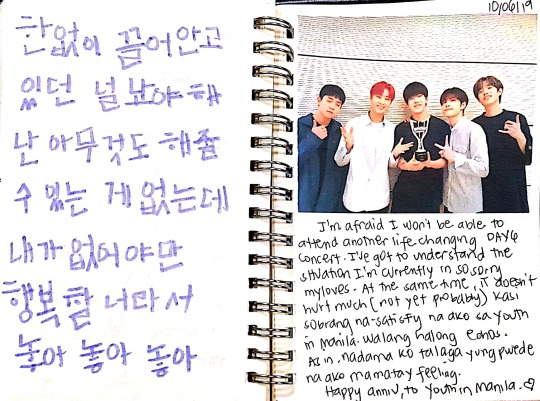 한없이 끌어안고
있던 널 놔야 해
난 아무것도 해줄
수 있는 게 없는데
내가 없어야만
행복할 너라서
놓아 놓아 놓아
10/06/19
I'm afraid I won't be able to
attend another life changing DAY6
concert. I've got to understand the
situation I'm currently in so sorry
my loves. At the same time, it doesn't
hurt much (not yet probably) kasi
sobrang na-satisfy na ako sa youth
in Manila. Walang halong echos.
As in, nadama ko talaga yung pwede
na ako mamatay feeling.
Happy anniv, to youth in Manila.